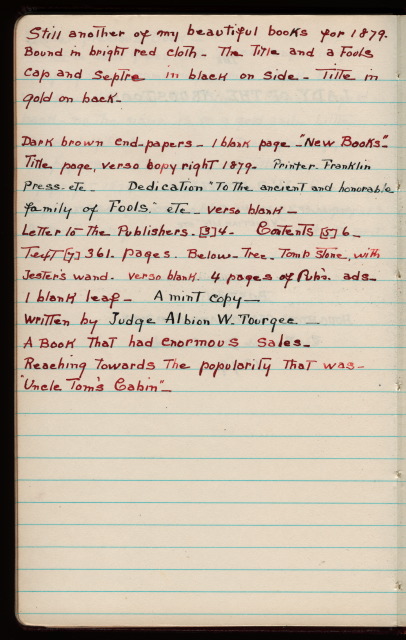 Still another of my beautiful books for 1879.
Bound in bright red cloth - The Title and a Fools
Cap and Septre in black on side - Title in
gold on back -
Dark brown end-papers - 1 blank page - "New Books" -
Title page, verso Copyright 1879. Printer. Franklin
Press. etc - Dedication "To the ancient and honorable
family of Fools." etc - verso blank -
Letter to the Publishers - [3] 4 - Contents [5] 6 -
Text [7] 361. pages. Below - Tree - Tomb Stone, with
Jester's wand. verso blank. 4 pages of Pub's. ads -
1 blank leaf - A mint copy -
Written by Judge Albion W. Tourgee -
A Book That had enormous Sales -
Reaching Towards The popularity That was -
"Uncle Tom's Cabin" -